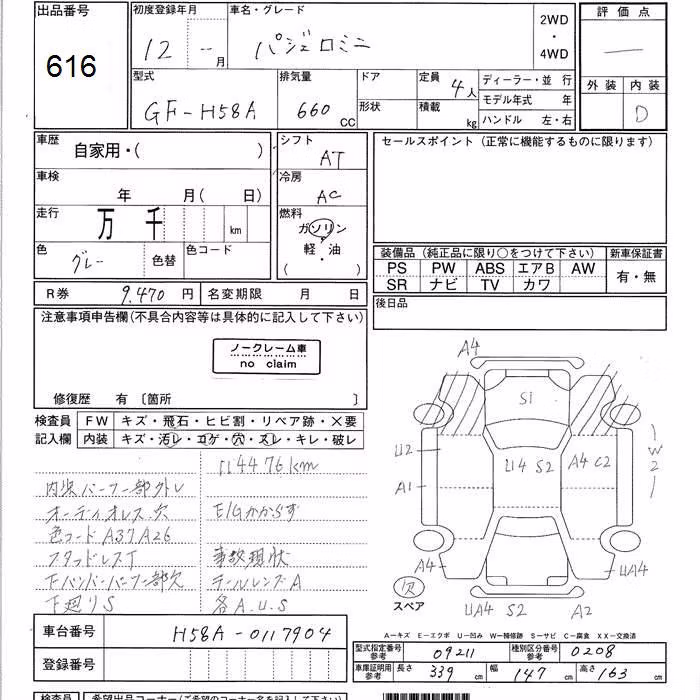 出品番号 初度登録年月 車名・グレード 2WD・4WD 評価点
616 12 ― 月 パジェロミニ ―
型式 排気量 ドア 定員 4人 ディーラー・並 行 外装 内装
GF-H58A 660 CC 形状 積載 kg モデル年式 年 D
ハンドル 左・右
車歴 シフト セールスポイント (正常に機能するものに限ります)
自家用・( ) AT
車検 冷房
年 月( 日) AC
走行 燃料
万 千 km ガソリン
色 色コード 軽・油 装備品 (純正品に限り○をつけて下さい) 新車保証書
グレー 色替 ( ) PS PW ABS エアB AW 有・無
SR ナビ TV カワ
R券 9,470 円 名変期限 月 日 後日品
注意事項申告欄(不具合内容等は具体的に記入して下さい)
ノークレーム車
no claim
修復歴 有 〔箇所 〕
検査員 FW キズ・飛石・ヒビ割・リペア跡・×要
記入欄 内装 キズ・汚レ・コゲ・穴・スレ・キレ・破レ
114476km
内装パーツ一部外レ
オーディオレス.穴 E/Gかからず
色コードA37A26
スタッドレスT 事故現状
Fバンパーパーツ一部欠 テールレンズA
下廻りS 各A.U.S
A4
S1
U2 U4 S2 A4 C2 W2
A1
A4 UA4
欠 スペア UA4 S2 A2
A―キズ E―エクボ U―凹み W―補修跡 S―サビ C―腐食 XX―交換済
車台番号 H58A-0117904
登録番号
型式指定番号 参考 09211 種別区分番号 参考 0208
車庫証明用 参考 長さ 339 cm 幅 147 cm 高さ 163 cm
検査員 希望出品コーナー(ご希望のコーナー名を記入